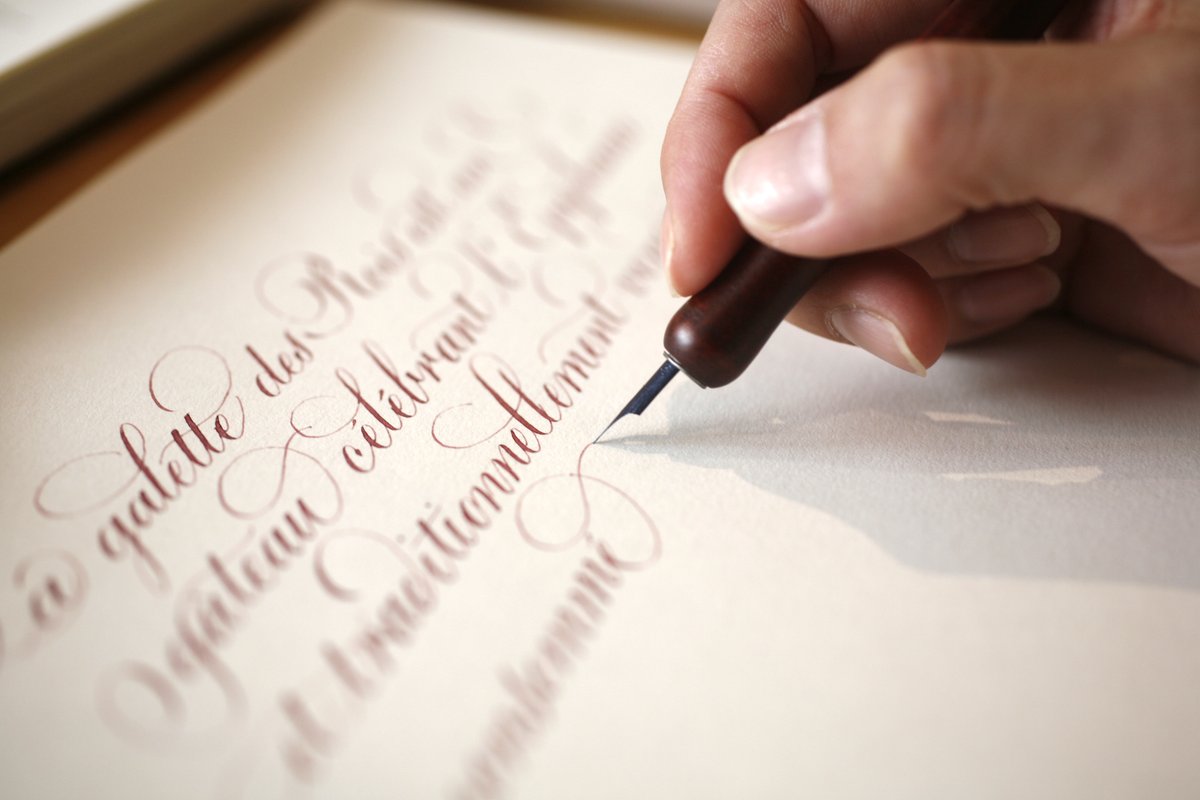 a galette des Rois est un
gateau célébrant l'Epiphanie
et traditionnellement